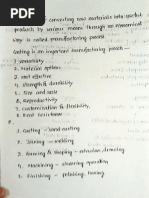 of converting raw materials into useful
products by various means through an economical
way is called manufacturing process.
Casting is an important manufacturing process —
1. Versatility
2. Material options
3. Cost effective
4. Strength & durability
5. Size and scale
6. Reproductivity
7. Customization & flexibility
8.
1. Casting — sand casting
2. Joining — welding
3. Forming & shaping — extrusion, drawing
4. Machining — shearing operation
5. Finishing — polishing, honing